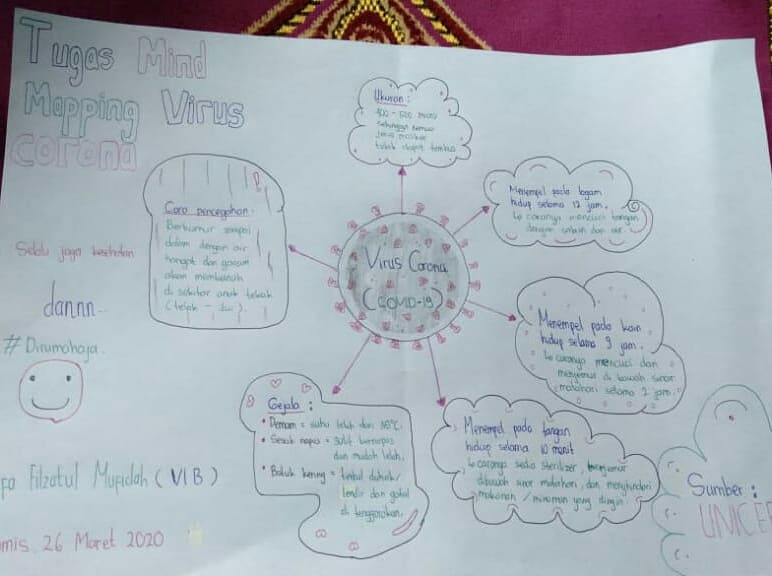 Tugas Mind
Mapping Virus
corona
Ukuran :
400 - 500 micro
sehingga semua
jenis masker
tidak dapat tembus
Cara pencegahan :
Berkumur sampai
dalam dengan air
hangat dan garam
akan membunuh
di sekitar anak tekak
Selalu jaga kesehatan
dannn..
#Dirumahaja.
Virus Corona
(COVID-19)
Menempel pada logam
hidup selama 12 jam.
caranya mencuci tangan
dengan sabun dan air
Menempel pada kain
hidup selama 9 jam.
caranya mencuci dan
menjemur di bawah sinar
matahari selama 2 jam.
Gejala :
• Demam = suhu lebih dari 38°C.
• Sesak napas = sulit bernapas
dan mudah lelah.
• Batuk kering = timbul dahak/
lendir dan gatal
di tenggorokan.
Menempel pada tangan
hidup selama 10 menit
caranya sedia sterilizer, menjemur
dibawah sinar matahari, dan menghindari
makanan / minuman yang dingin.
Filzatul Mufidah (VI B)
26 Maret 2020
Sumber :
UNICEF